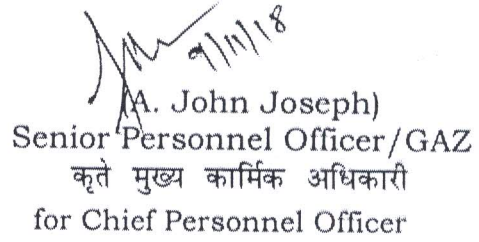 9/11/18
(A. John Joseph)
Senior Personnel Officer/GAZ
कृते मुख्य कार्मिक अधिकारी
for Chief Personnel Officer